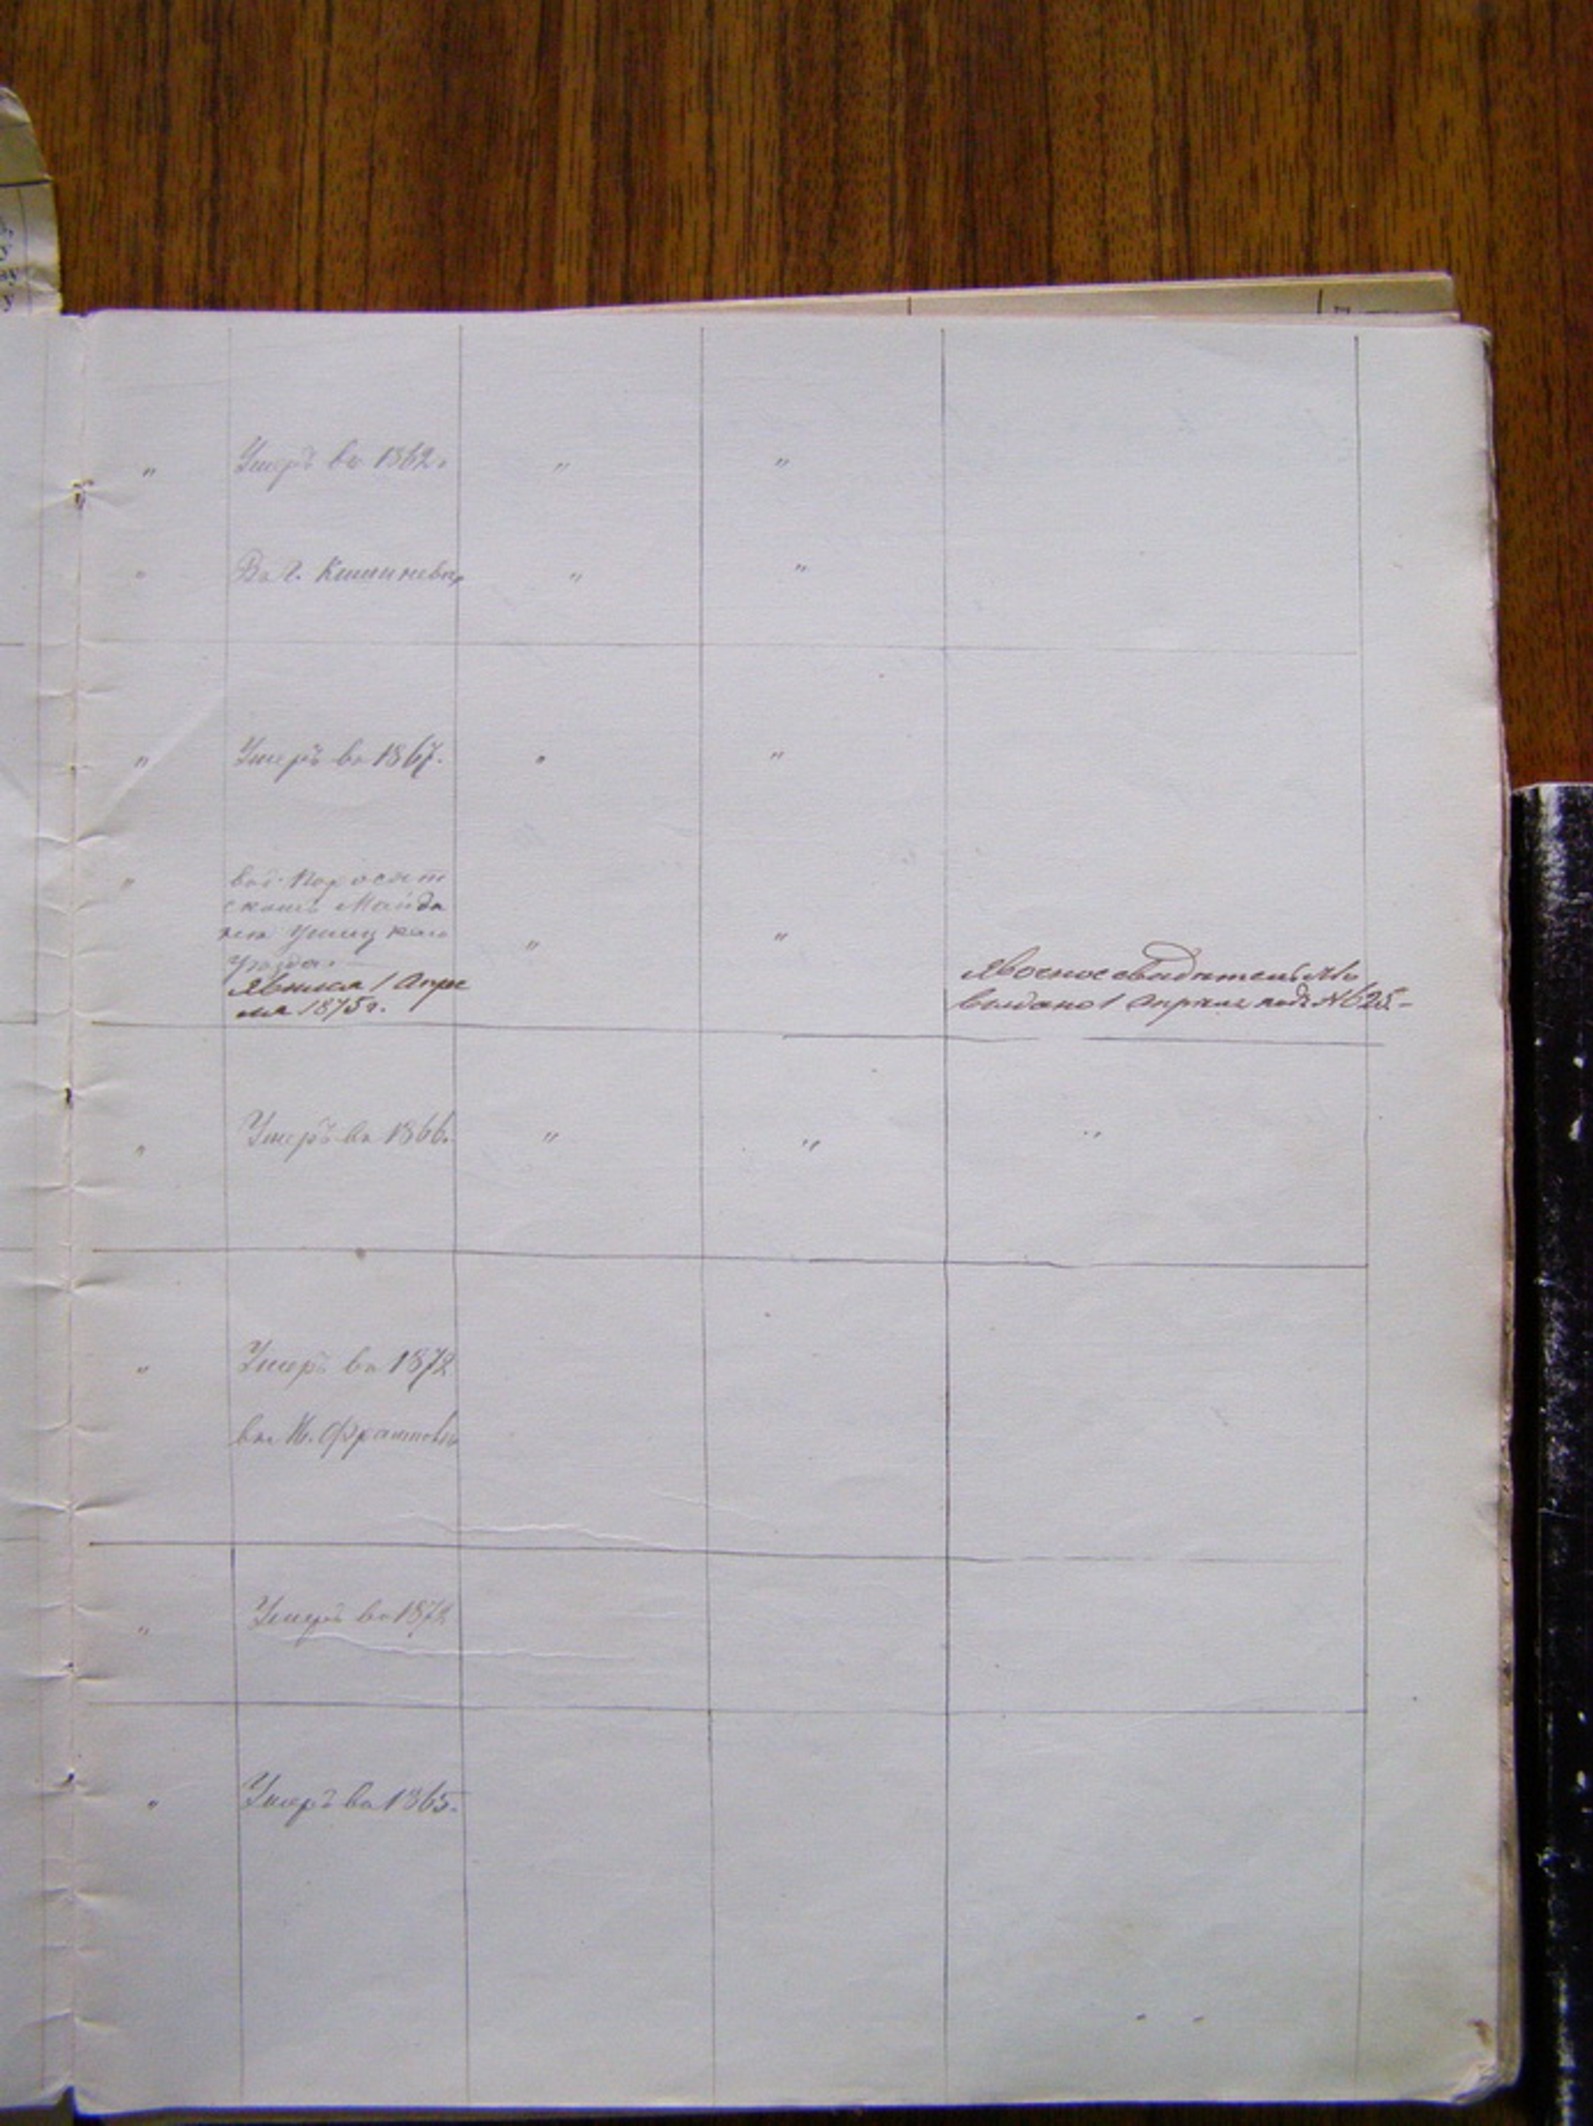 " Умеръ въ 1862. " "
" Въ г. Кишиневѣ, " "
" Умеръ въ 1867. " "
"
скомъ Майда
нѣ Ушицкаго " "
уѣзда.
Явился 1 Апрѣ Явочное свидѣтельство
ля 1875 г. выдано 1 Апрѣля подъ № 625 -
" Умеръ въ 1866. " " "
" Умеръ въ 1872
въ м.
" Умеръ въ 1872
" Умеръ въ 1865.